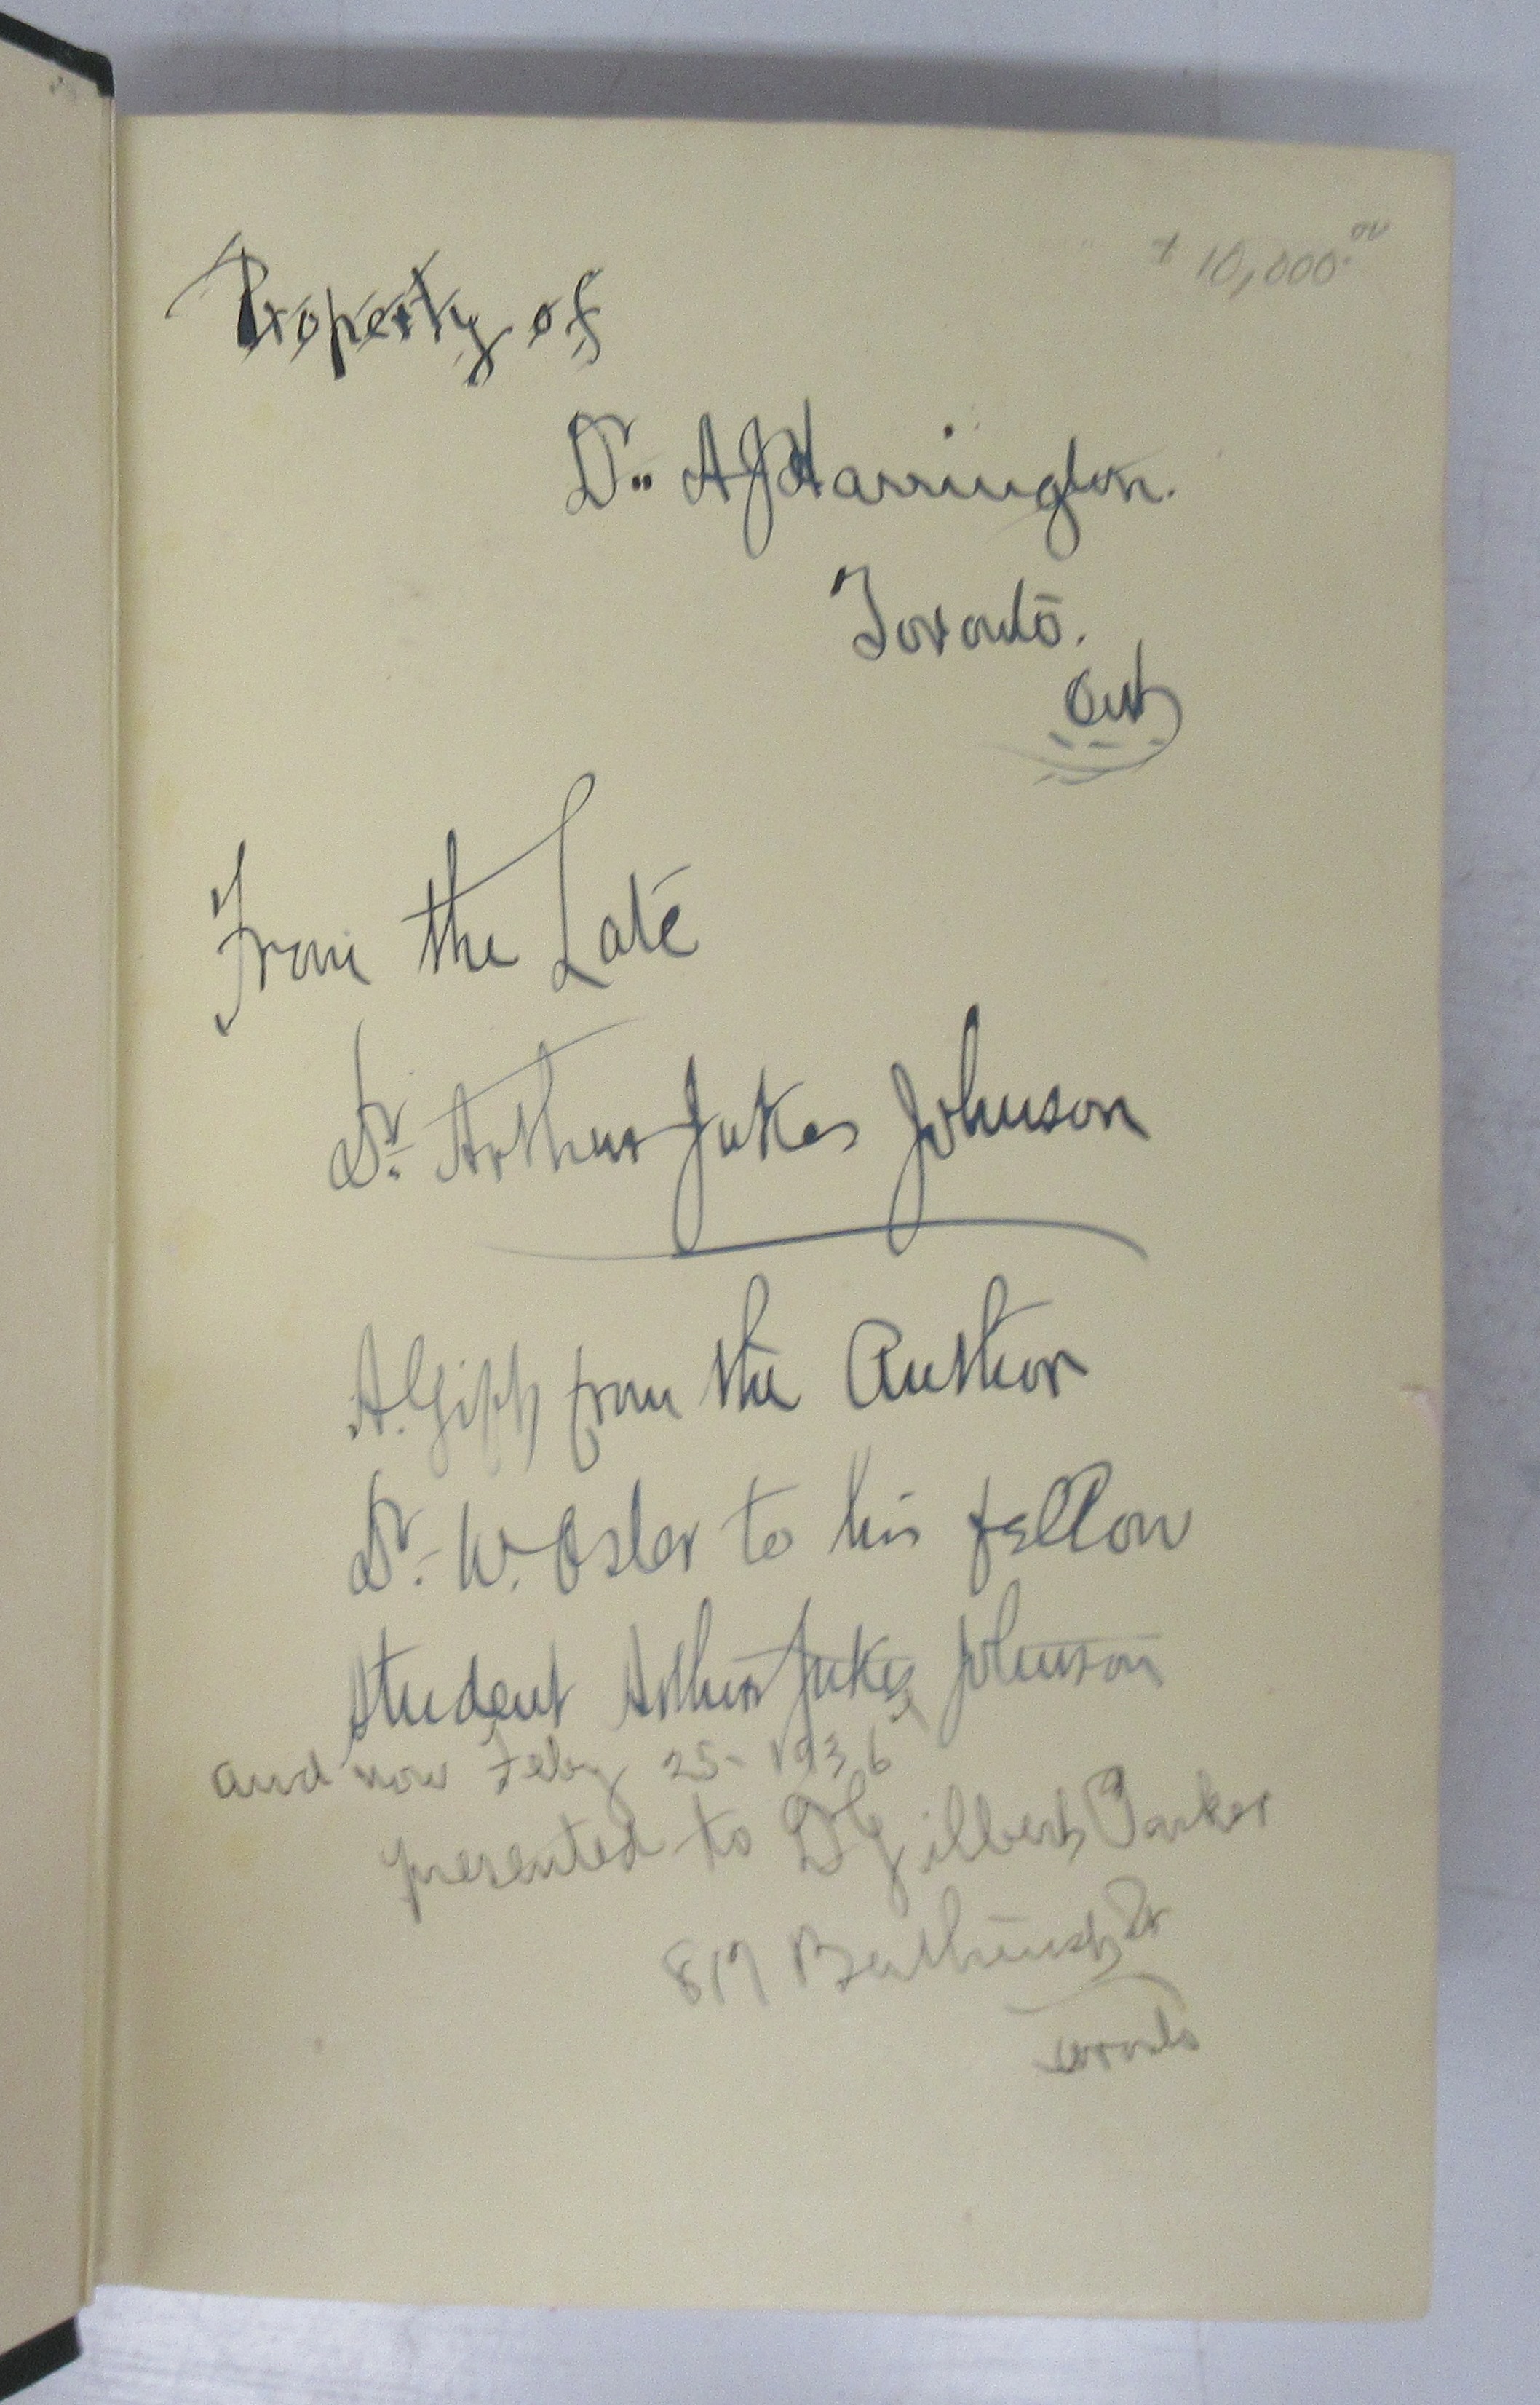 10,000.00
Property of
Dr. A J Harrington.
Toronto.
Ont
From the Late
Dr. Arthur Jukes Johnson
A. Gift from the Author
Dr. W. Osler to his fellow
Student Arthur Jukes Johnson
and now Feby 25 - 1936
presented to Dr Gilbert Parker
817 Bathurst St
Toronto